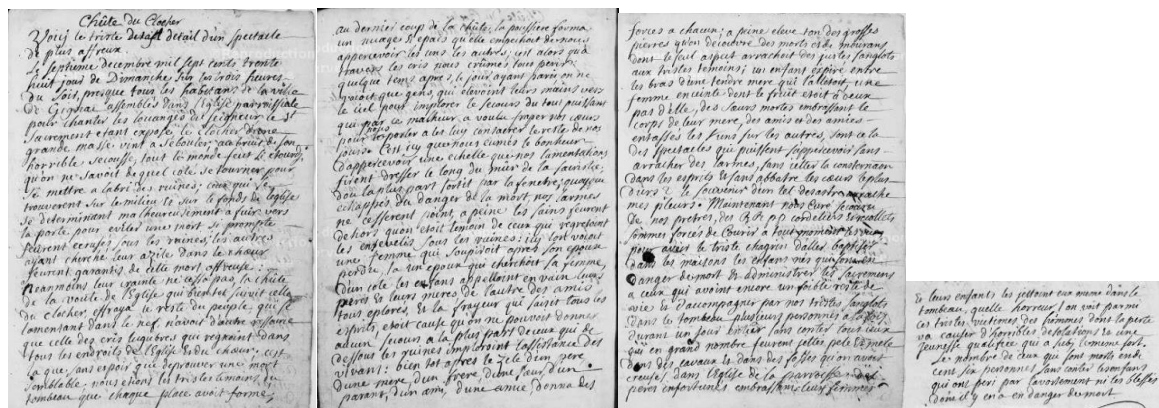 Chûte du Clocher
Voicy le triste detail d'un spectacle
de plus affreux.
Le septieme decembre mil sept cents trente
huit jour de Dimanche sur les trois heures
du soir, presque tous les habitans de la ville
de assembles dans l'Eglise parroissiale
pour chanter les louanges du seigneur le St
sacrement etant exposé, le clocher d'une
grande masse vint a s'ebouler, au bruit de son
horrible secousse, tout le monde feut si etourdi
qu'on ne savoit de quel coté se tourner pour
se mettre a l'abri des ruines; ceux qui se
trouverent sur le milieu et sur le fonds de l'eglise
se determinant malheureusement a fuir vers
la porte pour eviler une mort si prompte
feurent ecrasés sous les ruines, les autres
ayant cherché leur azile dans le chœur
feurent garantis de cette mort affreuse:
neanmoins leur crainte ne cessa pas, la chûte
de la voute de l'Eglise qui bientot suivit celle
du clocher effraya le reste du peuple, qui se
lamentant dans le nef n'avoit d'autre
que celle des cris lugubres qui regnoient dans
tous les endroits de l'Eglise et du chœur; c'est
la que sans espoir que d'eprouver une mort
semblable, nous etions les tristes temoins du
tombeau que chaque place avoit formé,
au dernier coup de la chûte, la poussiere forma
un nuage si epais qu'elle empechoit de nous
appercevoir les uns les autres; c'est alors qu'a
travers les cris nous crûmes tous perir;
quelque tems apres, le jour ayant paru on ne
voioit que gens, qui elevoient leurs mains vers
le ciel pour implorer le secours du tout puissant
qui par ce malheur a voulu fraper nos cœurs
pour nous porter a les luy consacrer le reste de nos
jours. C'est icy que nous eumes le bonheur
d'appercevoir une echelle que nos lamentations
firent dresser le long du mur de la sacristie;
d'ou la plus part sortit par la fenetre; quoyque
echappés du danger de la mort, nos larmes
ne cesserent point, a peine les sains feurent
dehors qu'on etoit temoin de ceux qui regretoient
les ensevelis sous les ruines: icy l'on voioit
une femme qui soupiroit apres son epoux
perdu, la un epoux qui cherchoit sa femme,
d'un coté les enfans appelloient en vain leurs
peres et leurs meres de l'autre des amis
tous eplorés, et la frayeur qui saisit tous les
esprits, etoit cause qu'on ne pouvoit donner
aucun secours a la plus part de ceux qui de
dessous les ruines imploroint l'assistance des
vivans: bien tot apres le zele d'un pere
d'une mere d'un frere d'une sœur, d'un
parant, d'un ami, d'une amie, donna des
forces a chacun; a peine eleve t'on des grosses
pierres qu'on decouvre des morts et de mourans
dont le seul aspect arrachoit des justes sanglots
aux tristes temoins; un enfant expire entre
les bras d'une tendre mere qui l'allaitoit, une
femme enceinte dont le fruit etoit a deux
pas d'elle, des sœurs mortes embrassant le
corps de leur mere, des amis et des amies
entassés les uns sur les autres, sont ce la
des spectacles qui puissent s'appercevoir sans
arracher des larmes, sans jetter la consternaon
dans les esprits et sans abbatre les cœurs les plus
durs? le souvenir d'un tel desastre arrache
mes pleurs. Maintenant nous Curé secouru
de nos pretres, des R R p p cordeliers et recollets
sommes forcés de courir a tout moment
pour avoir le triste chagrin d'aller baptiser
dans les maisons les enfans nés qui sont en
danger de mort et administrer les sacremens
a ceux qui avoint encore un foible reste de
vie et d'accompagner par nos tristes sanglots
dans le tombeau plusieurs personnes a la fois
durant un jour entier sans conter tous ceux
qui en grand nombre feurent jettés pele et mele
dans des caveaux et dans des fosses qu'on avoit
creusé, dans l'eglise de la parroisse des
peres infortunés embrassant leurs femmes
et leurs enfants se jettoint eux memes dans le
tombeau, quelle horreur! on voit par
ces tristes victimes des familles dont la perte
va causer d'horribles desolations et une
jeunesse qualifiée qui a suby le meme fort.
le nombre de ceux qui sont morts est de
cent six personnes sans conter les enfans
qui ont peri par l'avortement ni les blessés
dont il y en a en danger de mort